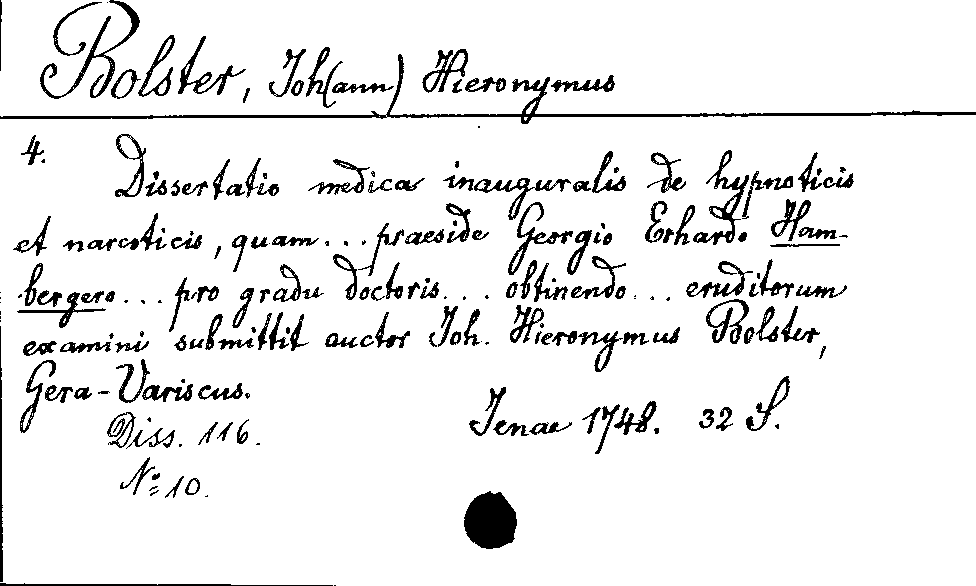 Bolster, Joh(ann) Hieronymus
4.
Dissertatio medica inauguralis de hypnoticis
et narcoticis, quam... praeside Georgio Erhardo Ham-
bergero... pro gradu doctoris... obtinendo... eruditorum
examini submittit auctor Joh. Hieronymus Bolster,
Gera-Variscus.
Jenae 1748. 32 S.
Diss. 116.
No 10.